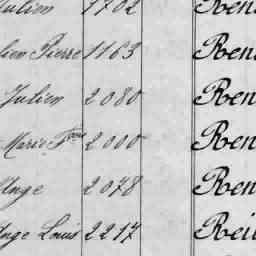 Julien 1702 Ren
lien Pierre 1163 Ren
Julien 2080 Ren
Marie Fçoise 2000 Ren
Ange 2078 Ren
Ange Louis 2217 Rei